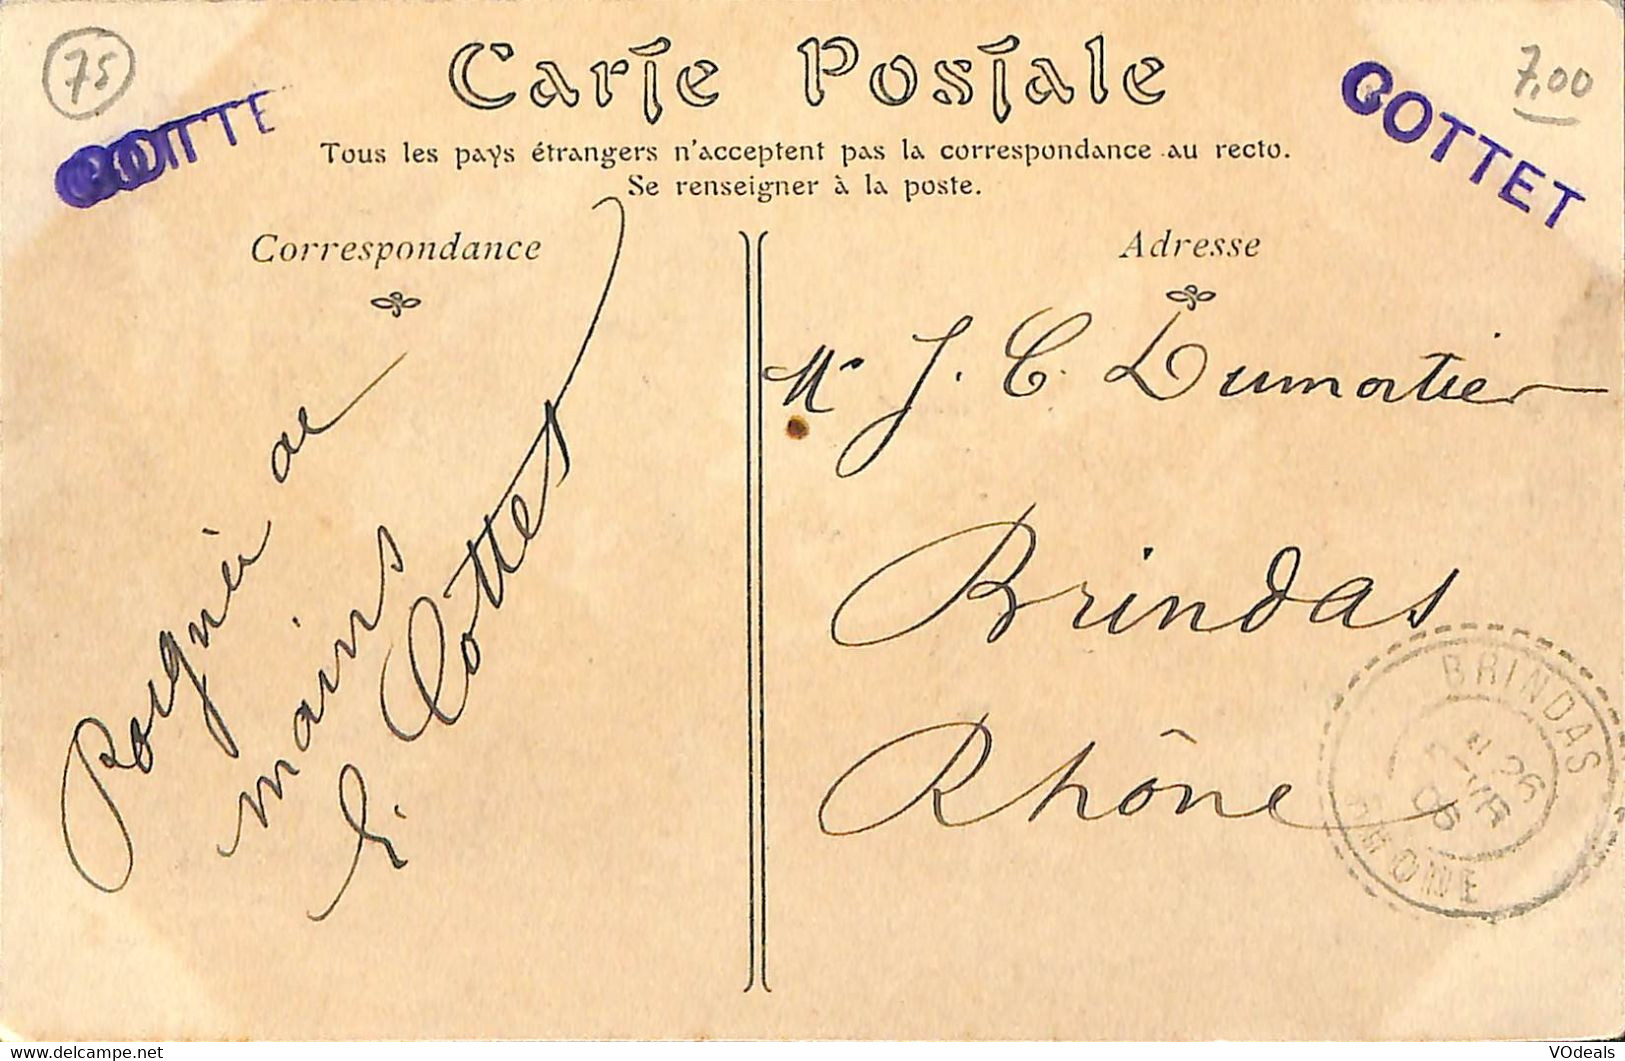 75
COTTE
Carte Postale
7,00
COTTET
Tous les pays étrangers n'acceptent pas la correspondance au recto.
Se renseigner à la poste.
Correspondance
Poignée de
mains
E. Cottet
Adresse
Mr J. C. Dumortier
Brindas
Rhône
BRINDAS
26
06
RHONE
VOdeals